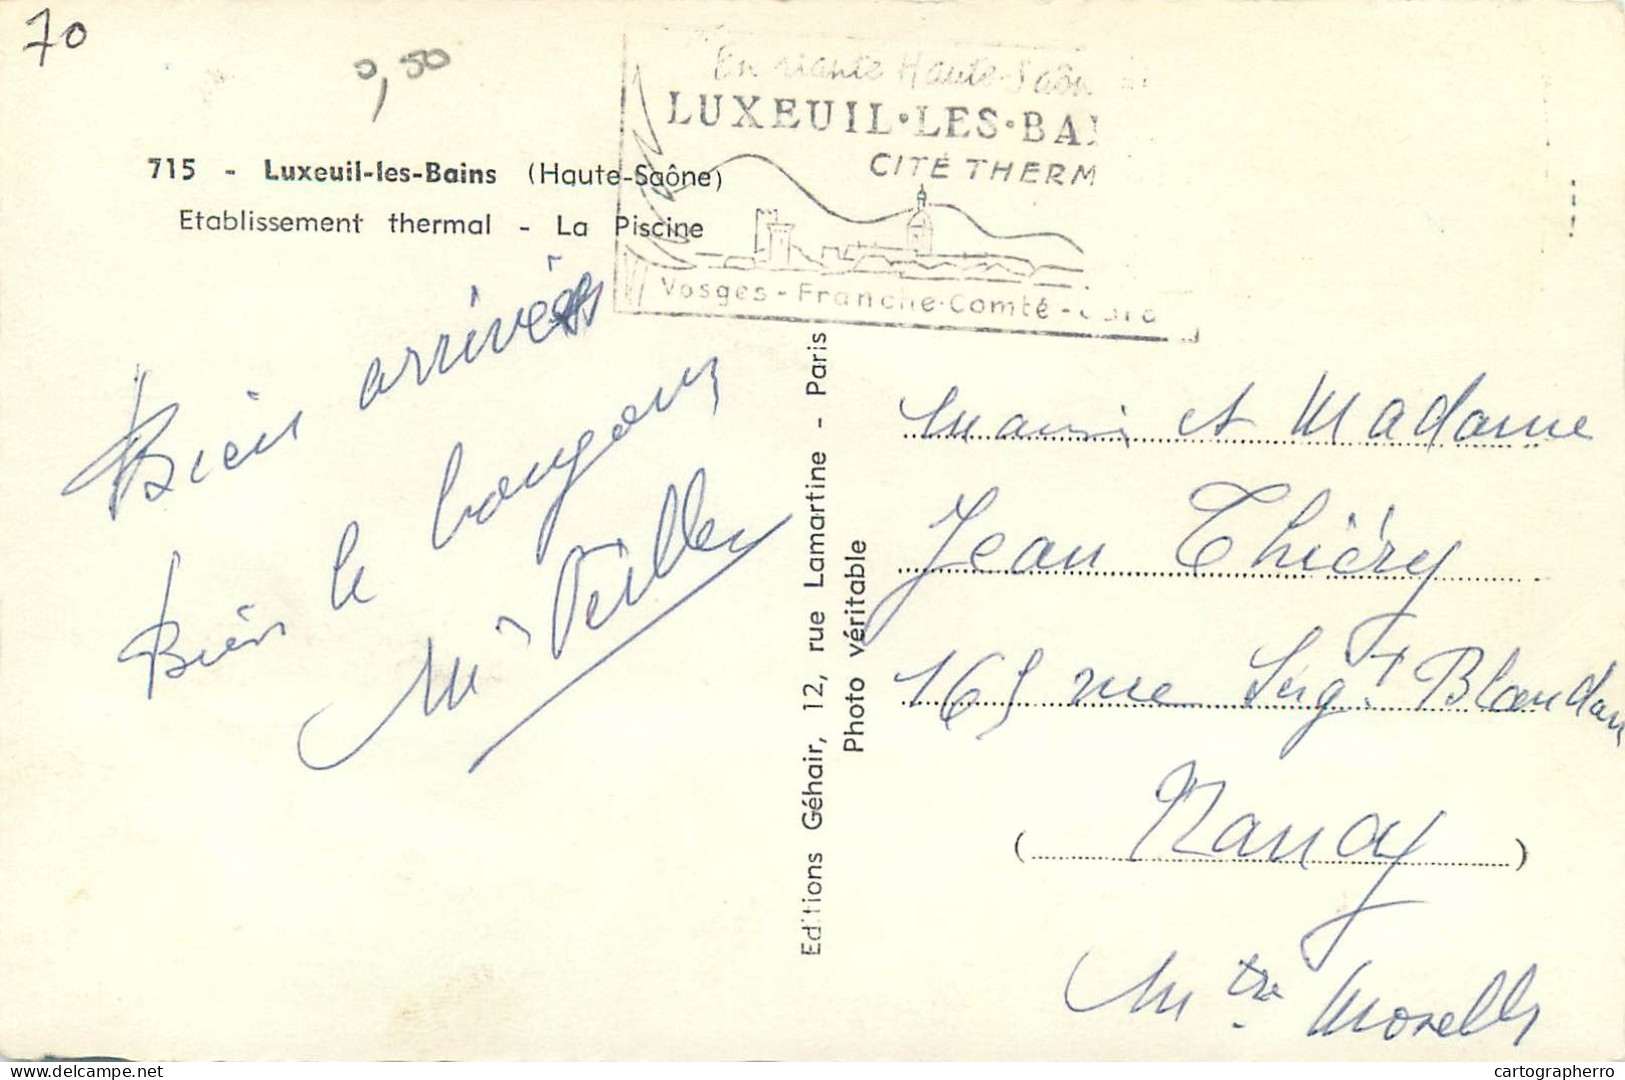 70
0,50
En riante Haute-Saôn
LUXEUIL•LES•BAI
CITÉ THERM
Vosges - Franche-Comté -
715 - Luxeuil-les-Bains (Haute-Saône)
Etablissement thermal - La Piscine
Bien arrivés
Bien le bonjour
Editions Géhair, 12, rue Lamartine - Paris
Photo véritable
et Madame
Jean Thiéry
165 rue Sergt Blandan
( Nancy )
Mrthe Moselle
www.delcampe.net
cartographerro